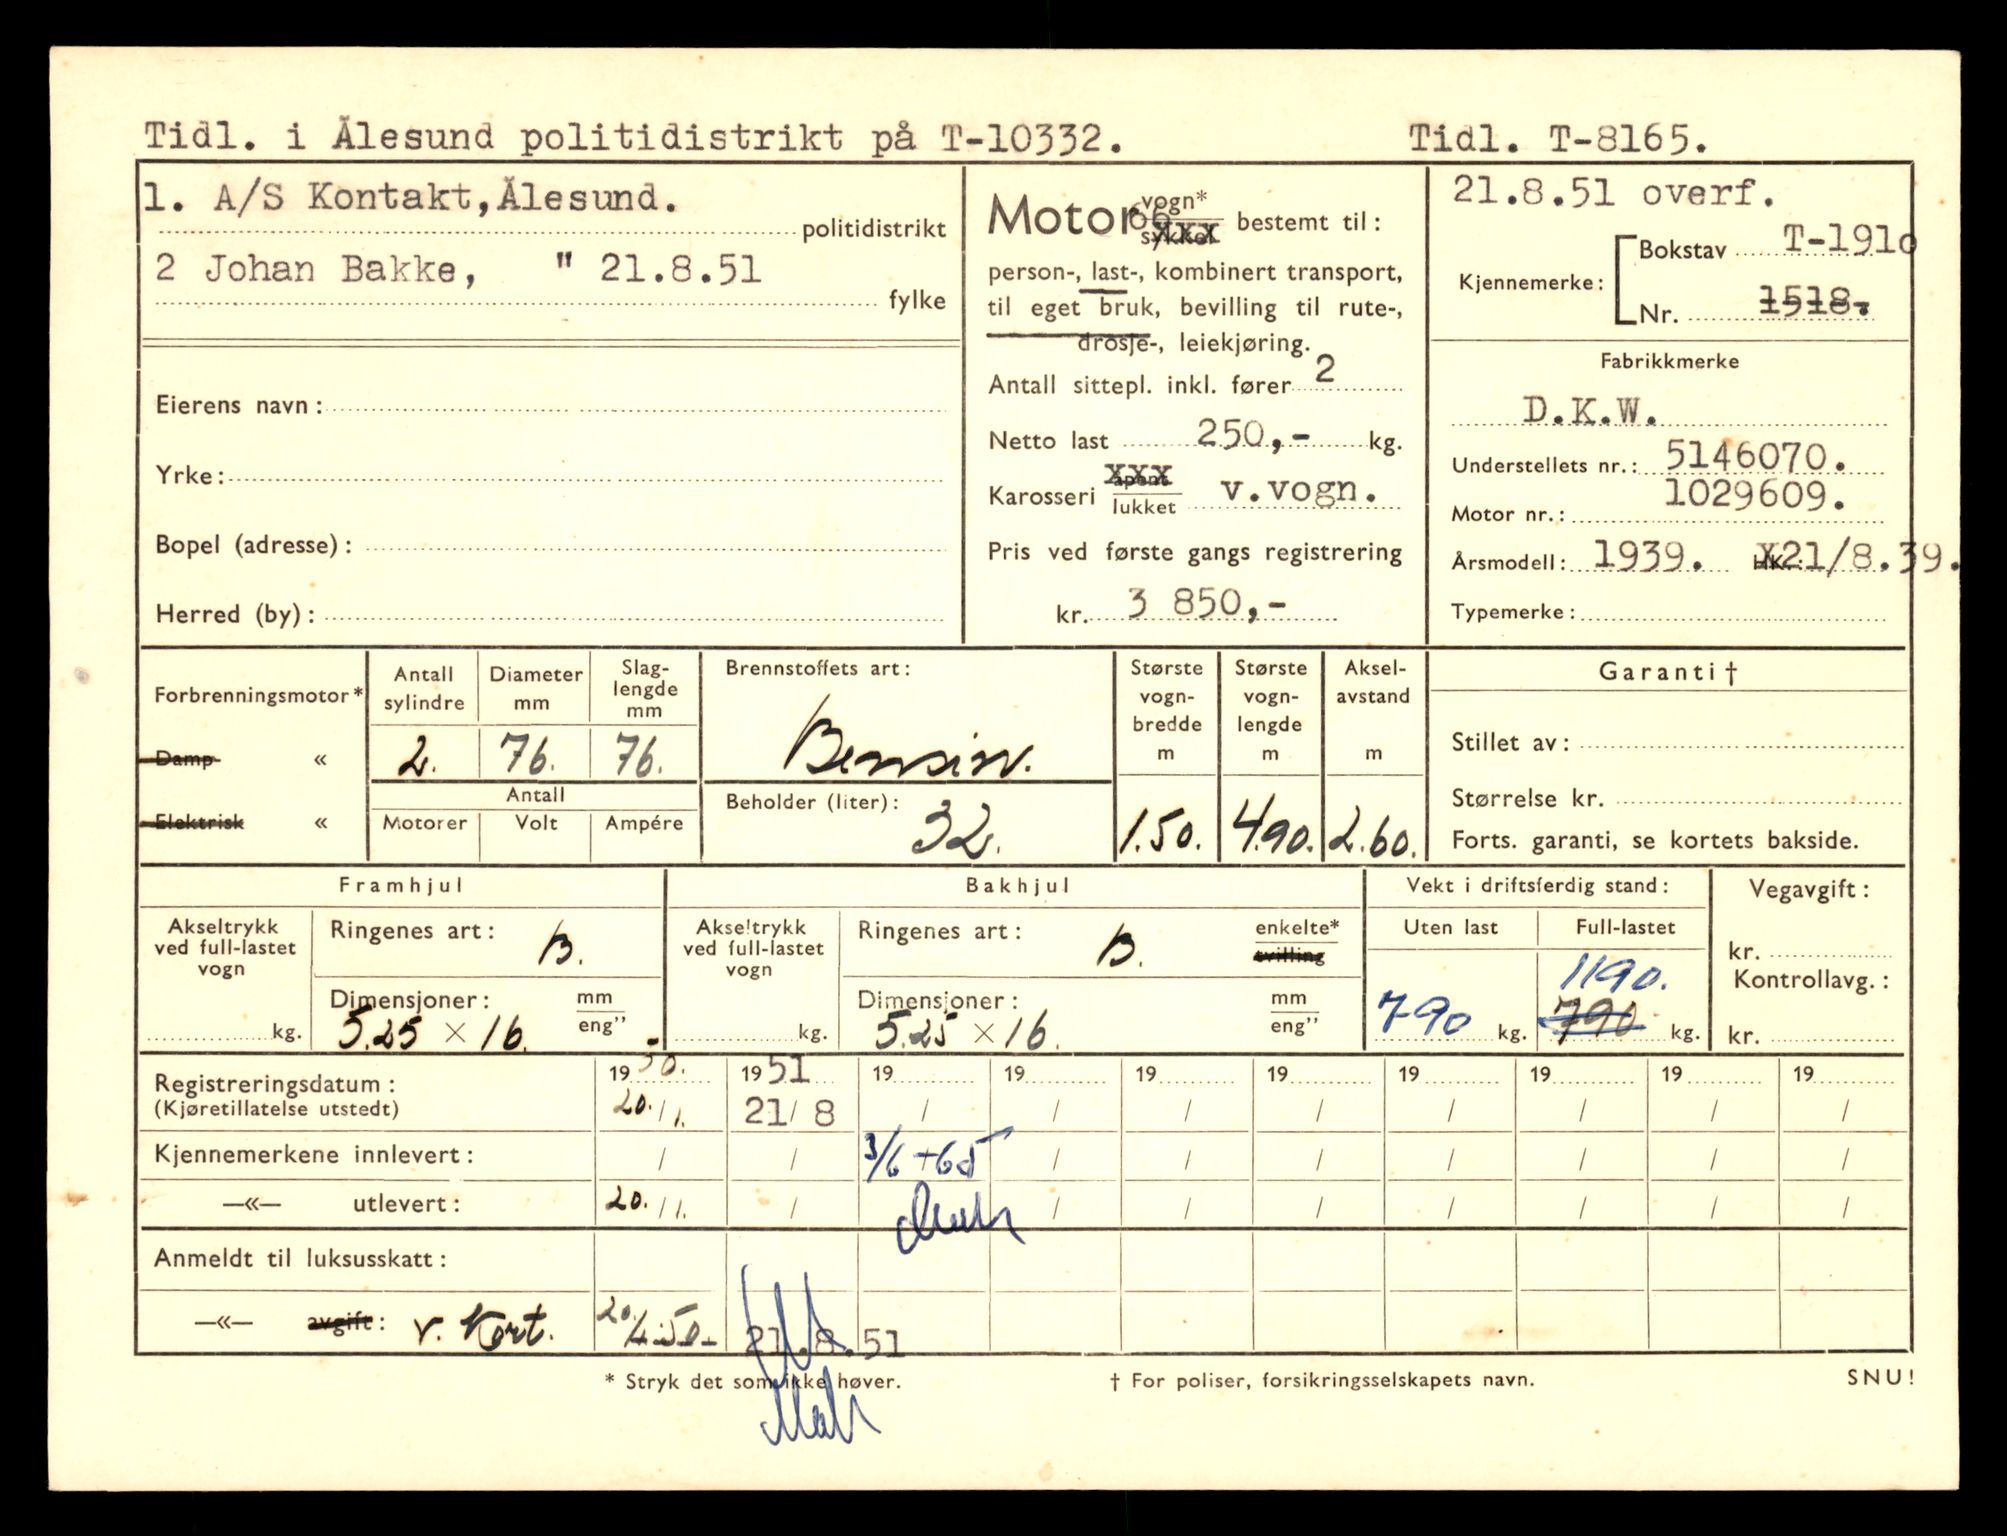 Tidl. i Ålesund politidistrikt på T-10332. Tidl. T-8165.
1. A/S Kontakt, Ålesund.
politidistrikt
2 Johan Bakke, " 21.8.51
fylke
Eierens navn:
Yrke:
Bopel (adresse):
Herred (by):
Motor vogn* sykkel bestemt til:
person-, last-, kombinert transport,
til eget bruk, bevilling til rute-,
drosje-, leiekjøring.
Antall sittepl. inkl. fører 2
Netto last 250,- kg.
Karosseri åpent lukket v.vogn.
Pris ved første gangs registrering
kr. 3 850,-
21.8.51 overf.
Kjennemerke: Bokstav T-1910
Nr. 1518.
Fabrikkmerke
D.K.W.
Understellets nr.: 5146070.
Motor nr.: 1029609.
Årsmodell: 1939. HK.: X21/8.39.
Typemerke:
Forbrenningsmotor*
Damp «
Elektrisk «
Antall sylindre Diameter mm Slag-lengde mm
2. 76. 76.
Antall
Motorer Volt Ampére
Brennstoffets art:
Bensin.
Beholder (liter):
32.
Største vogn-bredde m Største vogn-lengde m Aksel-avstand m
1.50. 4.90. 2.60.
Garanti †
Stillet av:
Størrelse kr.
Forts. garanti, se kortets bakside.
Framhjul
Akseltrykk ved full-lastet vogn
kg.
Ringenes art: B.
Dimensjoner: mm eng”
5.25 × 16.
Bakhjul
Akseltrykk ved full-lastet vogn
kg.
Ringenes art: B. enkelte* tvilling
Dimensjoner: mm eng”
5.25 × 16.
Vekt i driftsferdig stand:
Uten last Full-lastet
1190.
790 kg. 790 kg.
Vegavgift:
kr.
Kontrollavg.:
kr.
Registreringsdatum: 1950. 1951 19 19 19 19 19 19 19 19
(Kjøretillatelse utstedt) 20./1. 21/8 / / / / / / / /
Kjennemerkene innlevert: / / 3/6 + 65 / / / / / / /
—«— utlevert: 20./1. / / / / / / / /
Anmeldt til luksusskatt:
—«— avgift: v. Kort. 20./1-50- 21.8.51
* Stryk det som ikke høver. † For poliser, forsikringsselskapets navn. SNU!